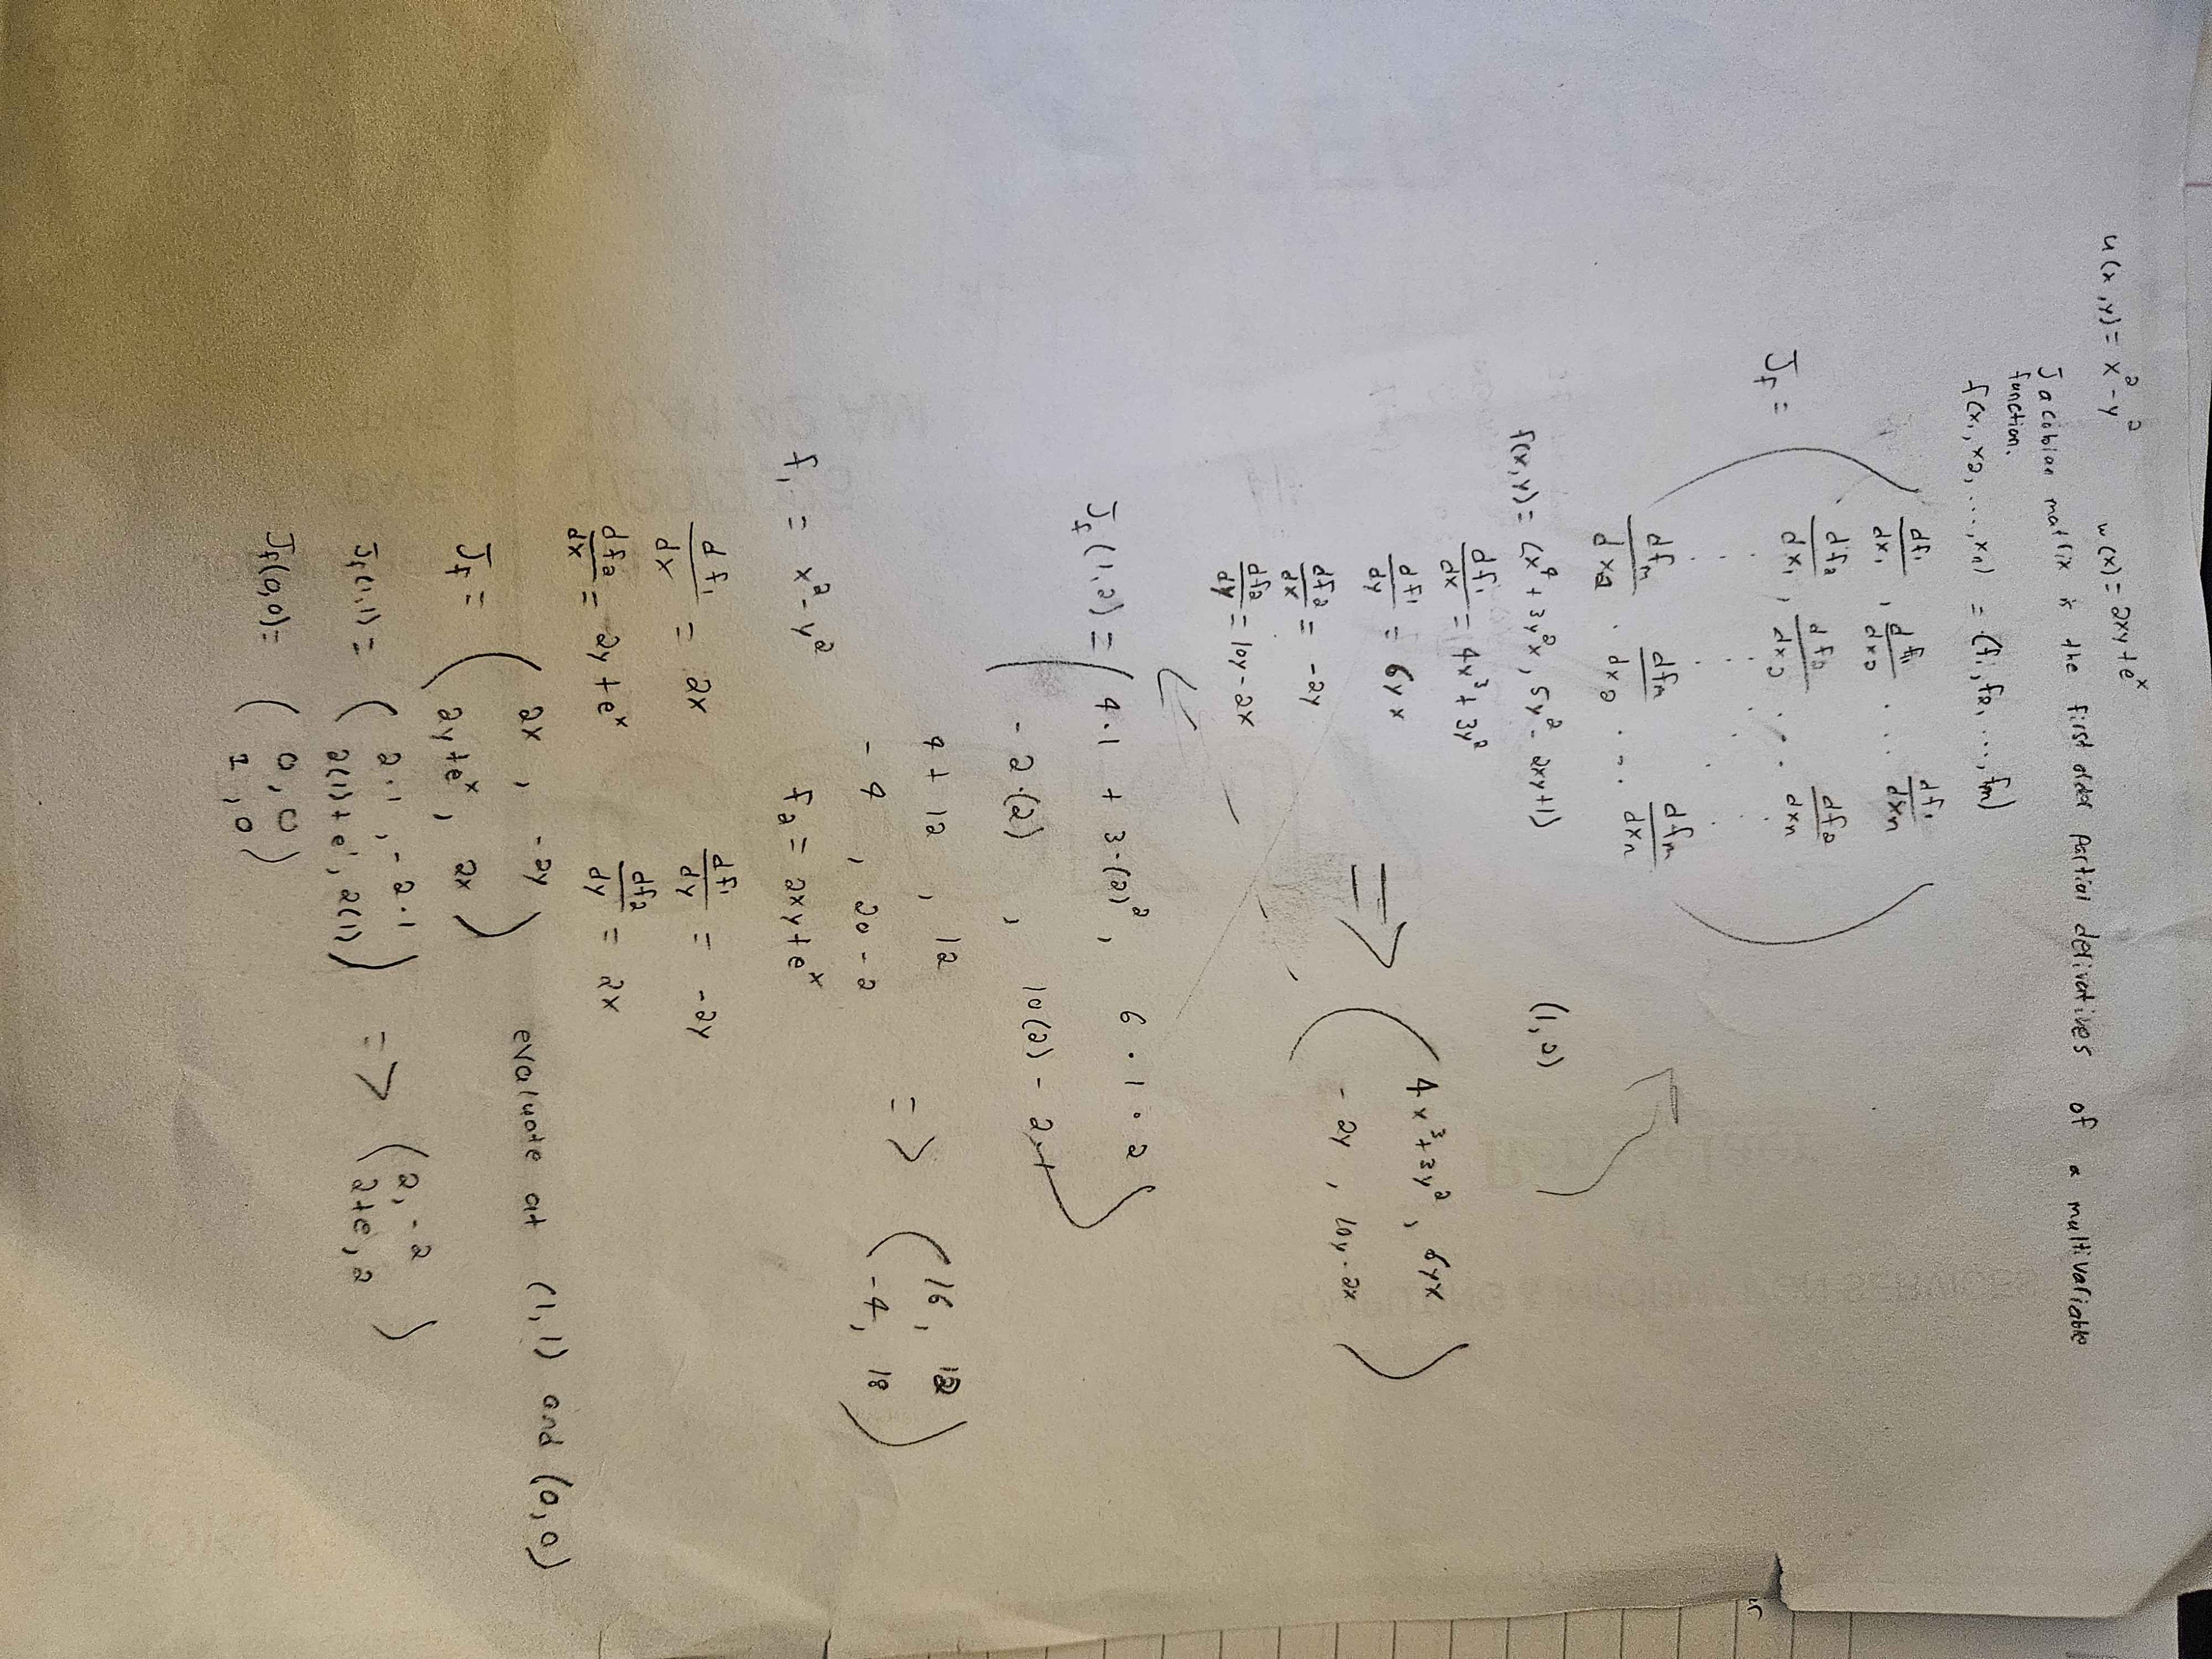 u(x,y) = x² - y²    w(x) = 2xy + e^x
Jacobian matrix is the first order partial derivatives of a multivariable
function.
f(x₁, x₂, ..., xn) = (f₁, f₂, ..., fm)
df₁/dx₁ , df₁/dx₂ . . . df₁/dxn
Jf = ( df₂/dx₁ , df₂/dx₂ . . . df₂/dxn )
dfm/dx2 . dfm/dx2 . . . dfm/dxn
f(x,y) = (x⁴ + 3y²x, 5y² - 2xy + 1)    (1,2)
df₁/dx = 4x³ + 3y²
df₁/dy = 6yx    => ( 4x³ + 3y² , 6yx
df₂/dx = -2y    -2y , 10y - 2x )
df₂/dy = 10y - 2x
Jf(1,2) = ( 4·1 + 3·(2)² , 6·1·2
-2·(2) , 10(2) - 2·1 )
4 + 12 , 12    => ( 16, 12
-4 , 20 - 2    -4, 18 )
f₁ = x² - y²    f₂ = 2xy + e^x
df₁/dx = 2x    df₁/dy = -2y
df₂/dx = 2y + e^x    df₂/dy = 2x
Jf = ( 2x , -2y    evaluate at (1,1) and (0,0)
2y + e^x , 2x )
Jf(1,1) = ( 2·1 , -2·1    => ( 2, -2
2(1) + e¹, 2(1) )    2+e, 2 )
Jf(0,0) = ( 0, 0
1, 0 )